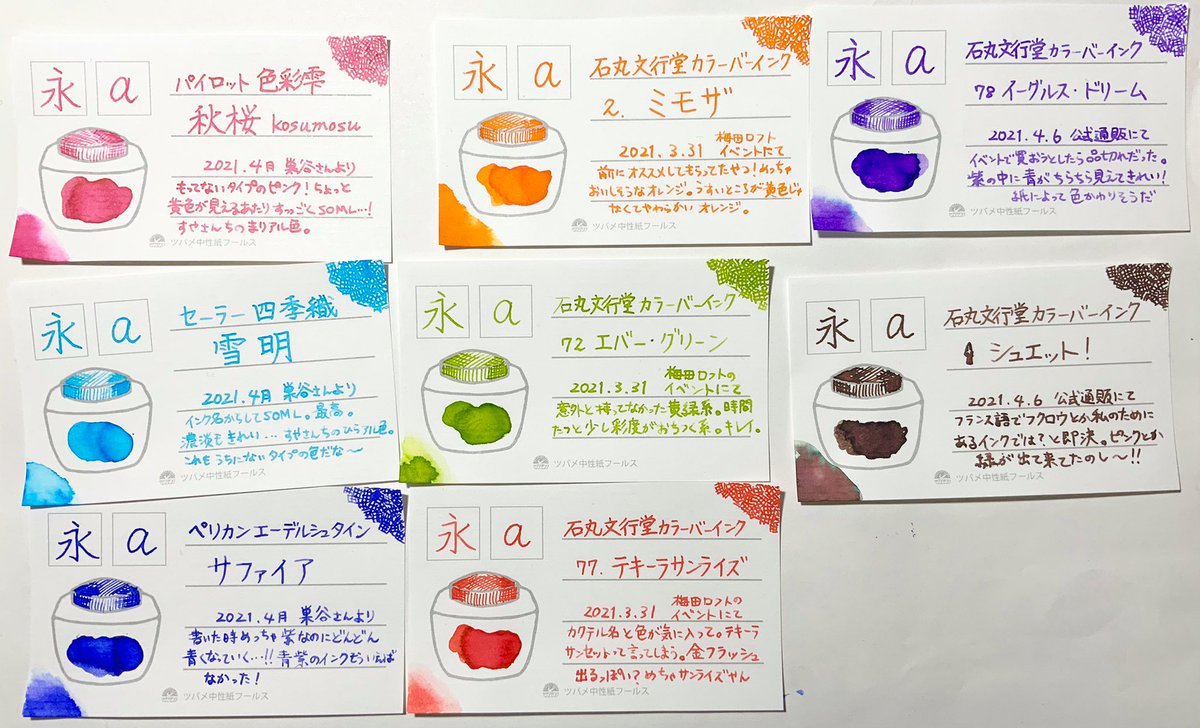 永 a
パイロット 色彩雫
秋桜 kosumosu
2021.4月 巣谷さんより
もってないタイプのピンク!ちょっと
黄色が見えるあたりすっごくSOML…!
すやさんちのまりアル色。
ツバメ中性紙フールス
永 a
石丸文行堂カラーバーインク
2. ミモザ
2021.3.31 梅田ロフト
イベントにて
前にオススメしてもらってたやつ!めっちゃ
おいしそうなオレンジ。うすいところが黄色じゃ
なくてやわらかい オレンジ。
ツバメ中性紙フールス
永 a
石丸文行堂カラーバーインク
78 イーグルス・ドリーム
2021.4.6 公式通販にて
イベントで買おうとしたら品切れだった。
紫の中に青がちらちら見えてきれい!
紙によって色かわりそうだ
ツバメ中性紙フールス
永 a
セーラー 四季織
雪明
2021.4月 巣谷さんより
インク名からしてSOML。最高。
濃淡もきれい… すやさんちのひらアル色。
これもうちにないタイプの色だな〜
ツバメ中性紙フールス
永 a
石丸文行堂カラーバーインク
72 エバー・グリーン
2021.3.31 梅田ロフトの
イベントにて
意外と持ってなかった黄緑系。時間
たつと少し彩度がおちつく系。キレイ。
ツバメ中性紙フールス
永 a
石丸文行堂カラーバーインク
シュエット!
2021.4.6 公式通販にて
フランス語でフクロウとか私のために
あるインクでは?と即決。ピンクとか
緑が出て来てたのし〜!!
ツバメ中性紙フールス
永 a
ペリカン エーデルシュタイン
サファイア
2021.4月 巣谷さんより
書いた時めっちゃ紫なのにどんどん
青くなっていく…!! 青紫のインクそういえば
なかった!
ツバメ中性紙フールス
永 a
石丸文行堂カラーバーインク
77. テキーラサンライズ
2021.3.31 梅田ロフトの
イベントにて
カクテル名と色が気に入って。テキーラ
サンセットって言ってしまう。金フラッシュ
出るっぽい?めちゃサンライズやん
ツバメ中性紙フールス